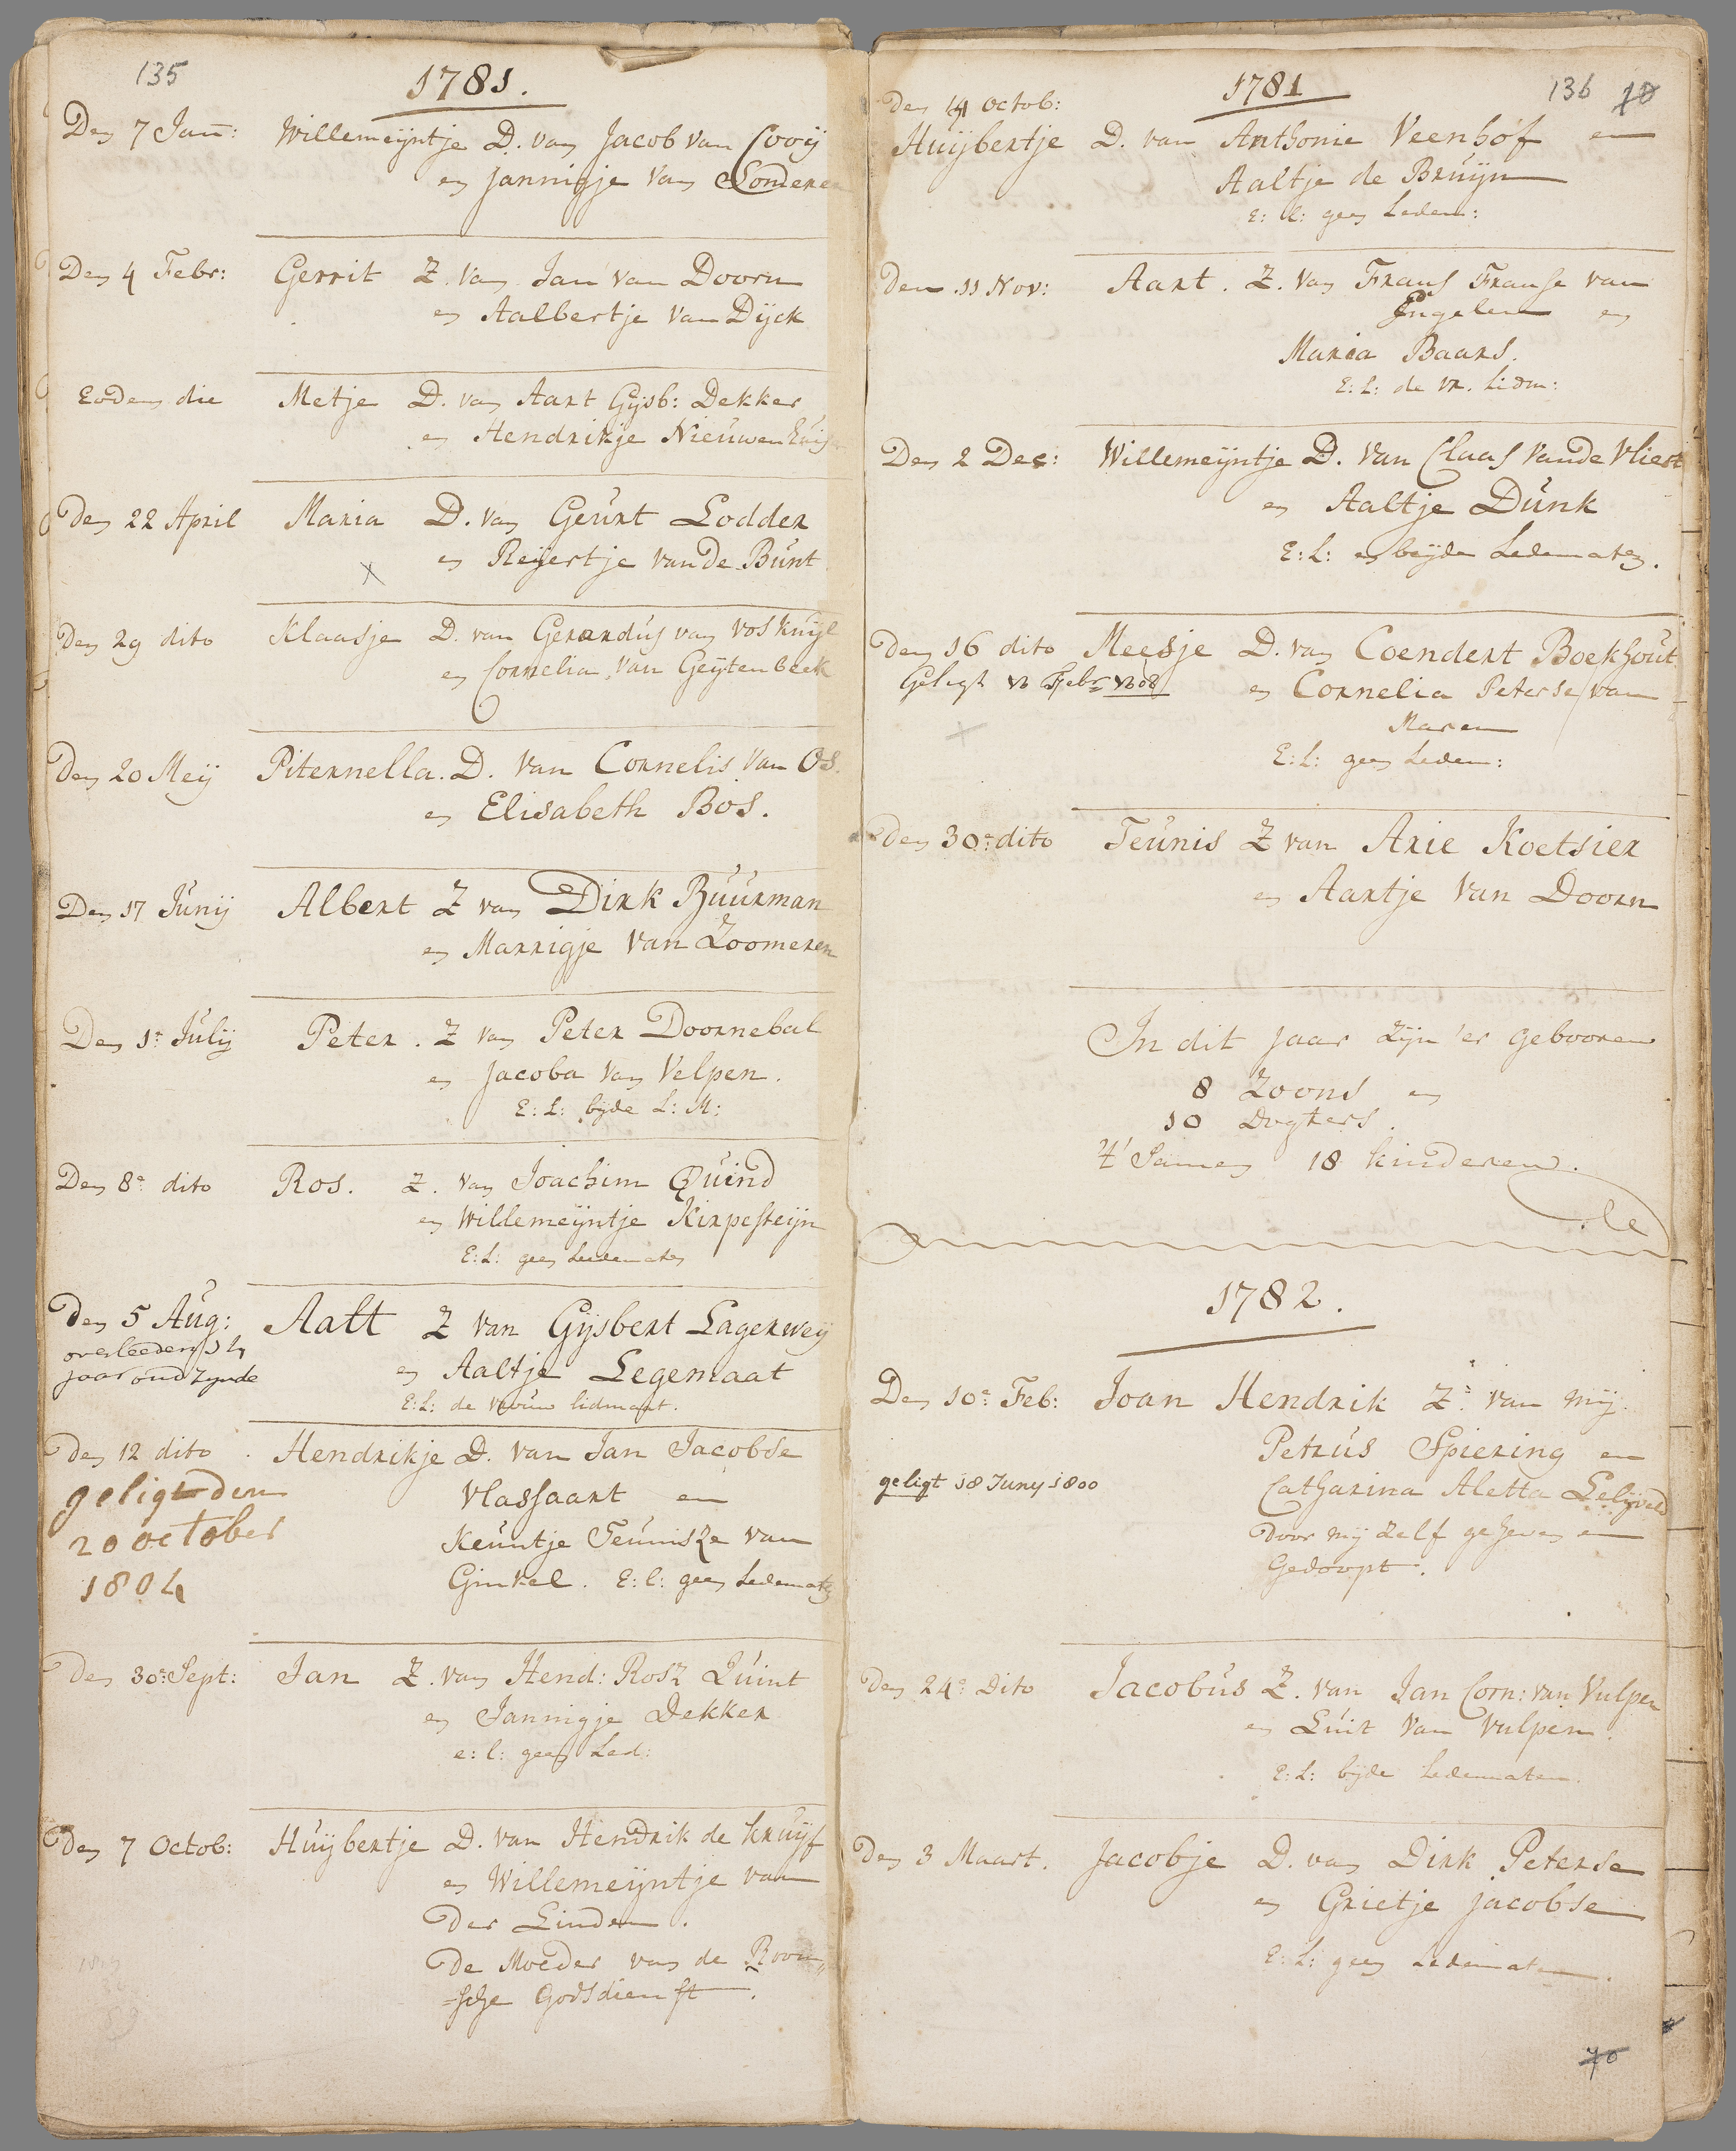 135
1781.
Den 7 Jan: Willemeijntje D. van Jacob van Cooij
en Jannigje van Londeren
Den 4 Febr: Gerrit Z. van Jan van Doorn
en Aalbertje van Dijck
Eodem die Metje D. van Aart Gijsb: Dekker
en Hendrikje Nieuwenhuijs
Den 22 April Maria D. van Geurt Lodder
en Reijertje van de Bunt
x
Den 29 dito Klaasje D. van Gerardus van Voskuijl
en Cornelia van Geijtenbeek
Den 20 Meij Piternella. D. van Cornelis van Os.
en Elisabeth Bos.
Den 17 Junij Albert Z van Dirk Buurman
en Marrigje van Zoomeren
Den 1e Julij Peter. Z van Peter Doornebal
en Jacoba van Velpen.
E: L: bijde L: M:
Den 8e dito Ros. Z. van Joachim Quind
en Willemeijntje Kirpesteijn
E: L: geen Ledematen
Den 5 Aug: Aalt Z van Gijsbert Lagerweij
overleeden 24
jaar oud zynde en Aaltje Legemaat
E: L: de vrouw lidmaat.
Den 12 dito. Hendrikje D. van Jan Jacobse
geligt den Vlassaart en
20 october Keuntje Teunisze van
1804 Ginkel. E: l: geen Ledematen
Den 30e Sept: Jan Z. van Hend: Rosz Quint
en Jannigje Dekker
e: l: geen Led:
Den 7 Octob: Huijbertje D. van Hendrik de Kruijf
en Willemeijntje van
der Linden.
De Moeder van de Room
=sche Godsdienst.
1781
136 70
Den 14 Octob:
Huijbertje D. van Anthonie Veenhof en
Aaltje de Bruijn
E: l: geen Ledem:
Den 11 Nov: Aart. Z. van Frans Franse van
Engelen en
Maria Baars.
E: L: de vr. Lidm:
Den 2 Dec: Willemeijntje D. van Claas van de Vliert
en Aaltje Dunk
E: L: en beijde Ledematen.
Den 16 dito Meesje D. van Coendert Boekhout
Geligt 13 Febr 1808 en Cornelia Peterse van
Maren
x E: L: geen Ledem:
Den 30e dito Teunis Z van Arie Koetsier
en Aartje van Doorn
In dit Jaar zijn 'er Gebooren
8 Zoons en
10 Dogters.
't Samen 18 kinderen.
1782.
Den 10e Feb: Joan Hendrik Z: van mij
Petrus Spiering en
geligt 18 Juny 1800 Catharina Aletta Lelijveld
door mij zelf geheven en
Gedoopt.
Den 24e Dito Jacobus Z. van Jan Corn: van Vulpen
en Luit van Vulpen.
E: L: bijde Ledematen.
Den 3 Maart. Jacobje D. van Dirk Peterse
en Grietje Jacobse
E: L: geen Ledematen.
70